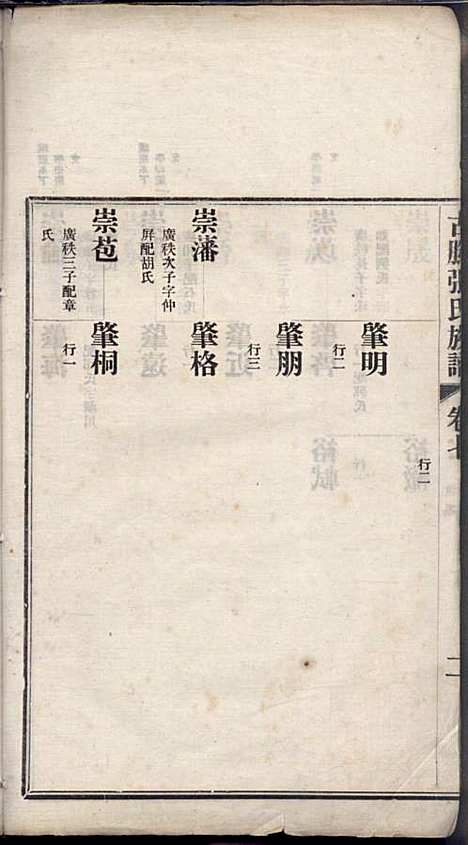 張氏族譜
卷七
二
行二
肇明
行二
肇朋
行三
崇藩
廣秩次子字仲
屏配胡氏
肇格
崇苞
廣秩三子配章
氏
肇桐
行一